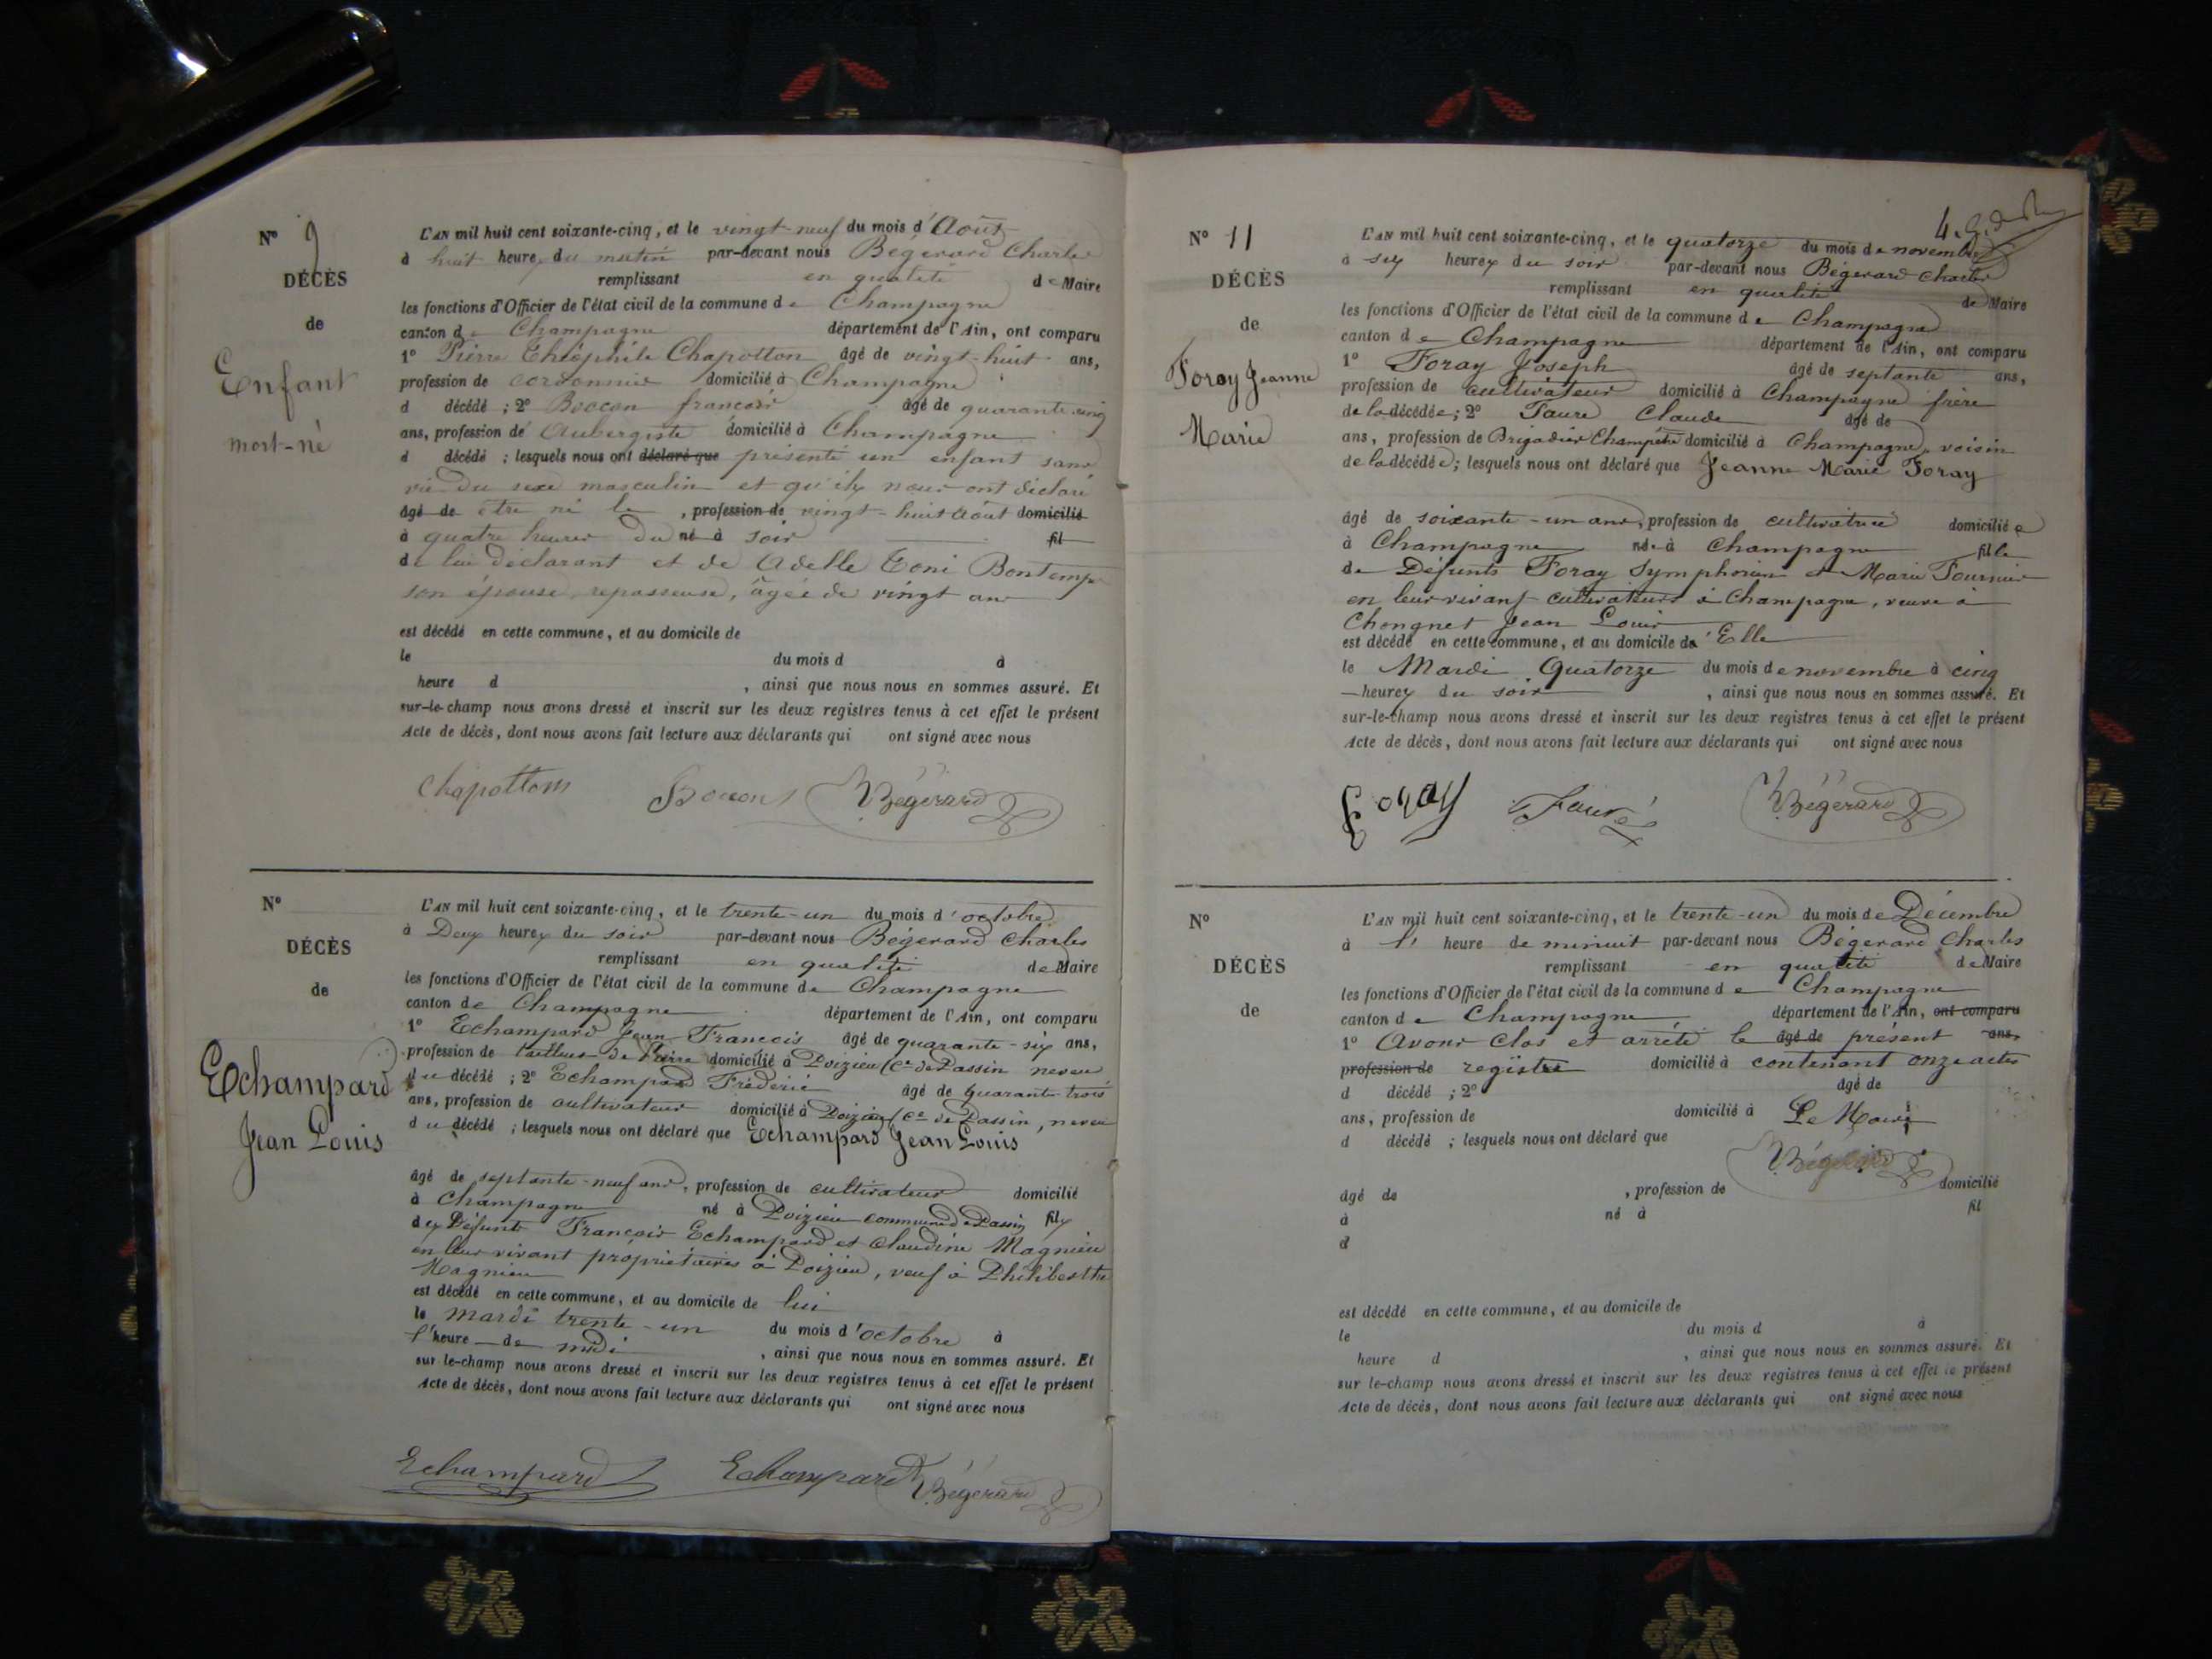 N° 9
DÉCÈS
de
Enfant
mort-né
L'AN mil huit cent soixante-cinq, et le vingt-neuf du mois d'Août
à huit heures du matin par-devant nous Bégerard Charles
remplissant en qualité de Maire
les fonctions d'Officier de l'état civil de la commune de Champagne
canton de Champagne département de l'Ain, ont comparu
1° Pierre Théophile Chapotton âgé de vingt-huit ans,
profession de cordonnier domicilié à Champagne
d décédé ; 2° Bocon françois âgé de quarante cinq
ans, profession de Aubergiste domicilié à Champagne
d décédé ; lesquels nous ont déclaré que présenté un enfant sans
vie du sexe masculin et qu'ils nous ont déclaré
âgé de être né le , profession de vingt-huit Août domicilié
à quatre heures du né à soir fil
de lui déclarant et de Adelle Toni Bontemps
son épouse, repasseuse, âgée de vingt ans
est décédé en cette commune, et au domicile de
le du mois d à
heure d , ainsi que nous nous en sommes assuré. Et
sur-le-champ nous avons dressé et inscrit sur les deux registres tenus à cet effet le présent
Acte de décès, dont nous avons fait lecture aux déclarants qui ont signé avec nous
Chapottom Bocon Bégerard
N°
DÉCÈS
de
Echampard
Jean Louis
L'AN mil huit cent soixante-cinq, et le trente-un du mois d'octobre
à Deux heures du soir par-devant nous Bégerard Charles
remplissant en qualité de Maire
les fonctions d'Officier de l'état civil de la commune de Champagne
canton de Champagne département de l'Ain, ont comparu
1° Echampard Jean François âgé de quarante-six ans,
profession de tailleur de Pierre domicilié à Poizieu (Cne de Passin neveu
du décédé ; 2° Echampard Fréderic âgé de quarante trois
ans, profession de cultivateur domicilié à Poizieu (Cne de Passin, neveu
du décédé ; lesquels nous ont déclaré que Echampard Jean Louis
âgé de septante-neuf ans, profession de cultivateur domicilié
à Champagne né à Poizieu commune de Passin fils
des Défunts François Echampard et Claudine Magnieu
en leur vivant propriétaires à Poizieu, veuf à Philiberthe
Magnieu
est décédé en cette commune, et au domicile de lui
le mardi trente-un du mois d'octobre à
l'heure de midi , ainsi que nous nous en sommes assuré. Et
sur le-champ nous avons dressé et inscrit sur les deux registres tenus à cet effet le présent
Acte de décès, dont nous avons fait lecture aux déclarants qui ont signé avec nous
Echampard Echampard Bégerard
4
N° 11
DÉCÈS
de
Foray Jeanne
Marie
L'AN mil huit cent soixante-cinq, et le quatorze du mois de novembre
à six heures du soir par-devant nous Bégerard Charles
remplissant en qualité de Maire
les fonctions d'Officier de l'état civil de la commune de Champagne
canton de Champagne département de l'Ain, ont comparu
1° Foray Joseph âgé de septante ans,
profession de cultivateur domicilié à Champagne frère
de la décédée ; 2° Faure Claude âgé de
ans, profession de Brigadier Champêtre domicilié à Champagne, voisin
de la décédée ; lesquels nous ont déclaré que Jeanne Marie Foray
âgé de soixante-un ans, profession de cultivatrice domiciliée
à Champagne née à Champagne fille
de Défunts Foray Symphorien et Marie Fournier
en leur vivant cultivateurs à Champagne, veuve à
Chongnet Jean Louis
est décédé en cette commune, et au domicile de Elle
le Mardi Quatorze du mois de novembre à cinq
heures du soir , ainsi que nous nous en sommes assuré. Et
sur-le-champ nous avons dressé et inscrit sur les deux registres tenus à cet effet le présent
Acte de décès, dont nous avons fait lecture aux déclarants qui ont signé avec nous
Foray Fauré Bégerard
N°
DÉCÈS
de
L'AN mil huit cent soixante-cinq, et le trente-un du mois de Décembre
à l' heure de minuit par-devant nous Bégerard Charles
remplissant en qualité de Maire
les fonctions d'Officier de l'état civil de la commune de Champagne
canton de Champagne département de l'Ain, ont comparu
1° Avons Clos et arrêté le âgé de présent ans,
profession de registre domicilié à contenant onze actes
d décédé ; 2° âgé de
ans, profession de domicilié à Le Maire
d décédé ; lesquels nous ont déclaré que
Bégerard
âgé de , profession de domicilié
à né à fil
d
est décédé en cette commune, et au domicile de
le du mois d à
heure d , ainsi que nous nous en sommes assuré. Et
sur le-champ nous avons dressé et inscrit sur les deux registres tenus à cet effet le présent
Acte de décès, dont nous avons fait lecture aux déclarants qui ont signé avec nous